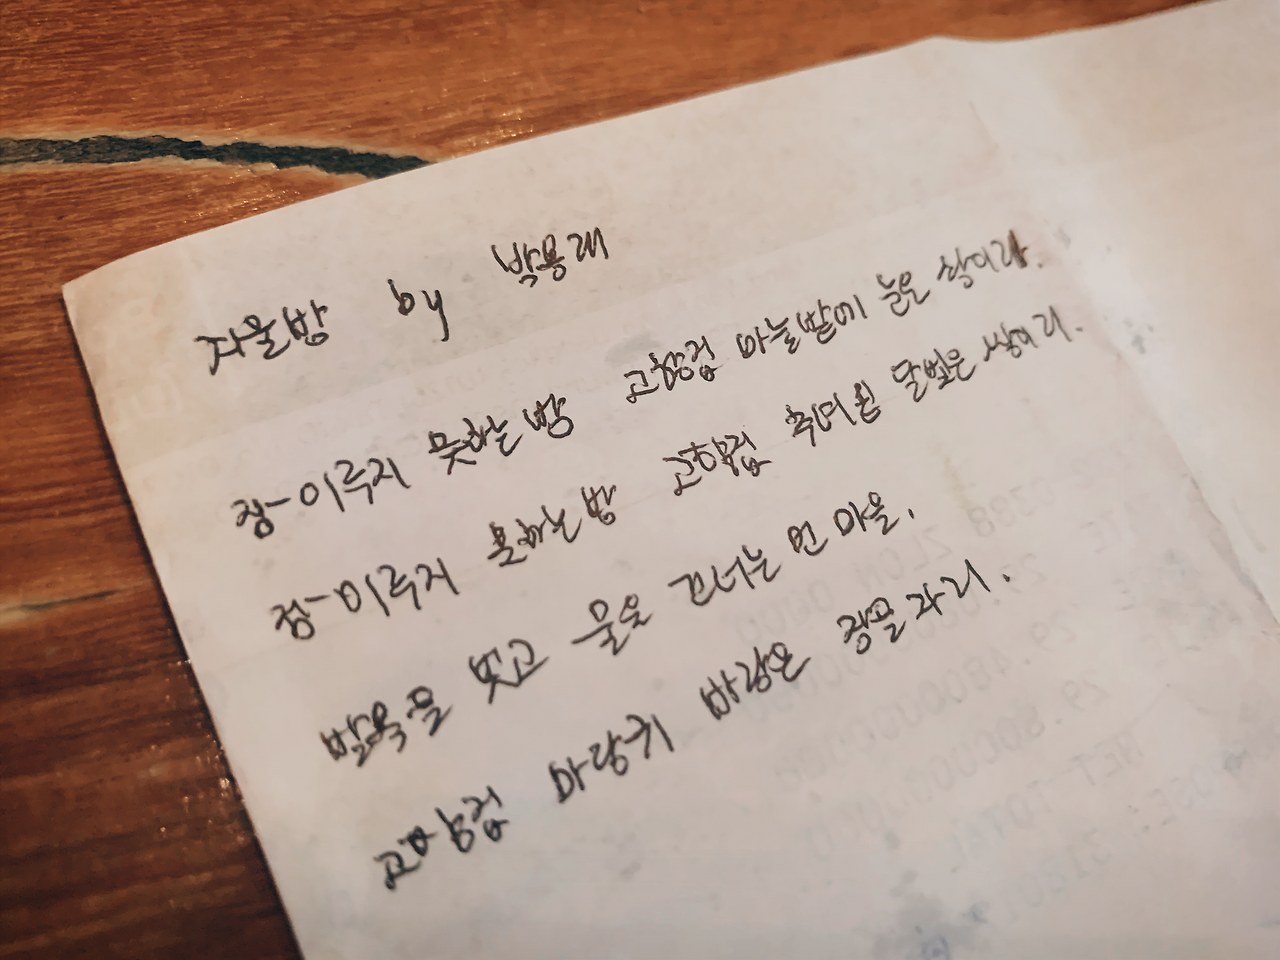 겨울밤 by 박용래
잠 이루지 못하는 밤 고향집 마늘밭에 눈은 쌓이리.
잠 이루지 못하는 밤 고향집 추녀밑 달빛은 쌓이리.
발목을 벗고 물을 건너는 먼 마을.
고향집 마당귀 바람은 잠을 자리.